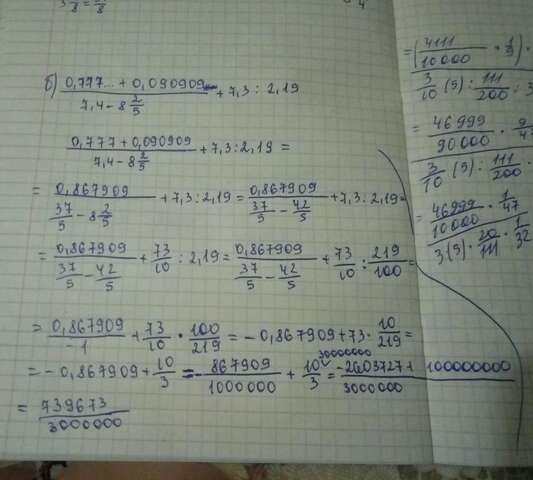 б) (0,777... + 0,090909)/(7,4 - 8 2/5) + 7,3 : 2,19
(0,777 + 0,090909)/(7,4 - 8 2/5) + 7,3 : 2,19 =
= 0,867909/(37/5 - 8 2/5) + 7,3 : 2,19 = 0,867909/(37/5 - 42/5) + 7,3 : 2,19 =
= 0,867909/(37/5 - 42/5) + 73/10 : 2,19 = 0,867909/(37/5 - 42/5) + 73/10 : 219/100 =
= 0,867909/-1 + 73/10 · 100/219 = - 0,867909 + 73 · 10/219 =
= - 0,867909 + 10/3 = - 867909/1000000 + 10/3 =
= 739673/3000000
= (4111/10000 · 1/9) ·
3/10 (5) : 111/200 : 3
= 46999/90000 · 9/47
3/10 (5) : 111/200 ·
= 46999/10000 · 1/47
3(5) · 20/111 · 1/32